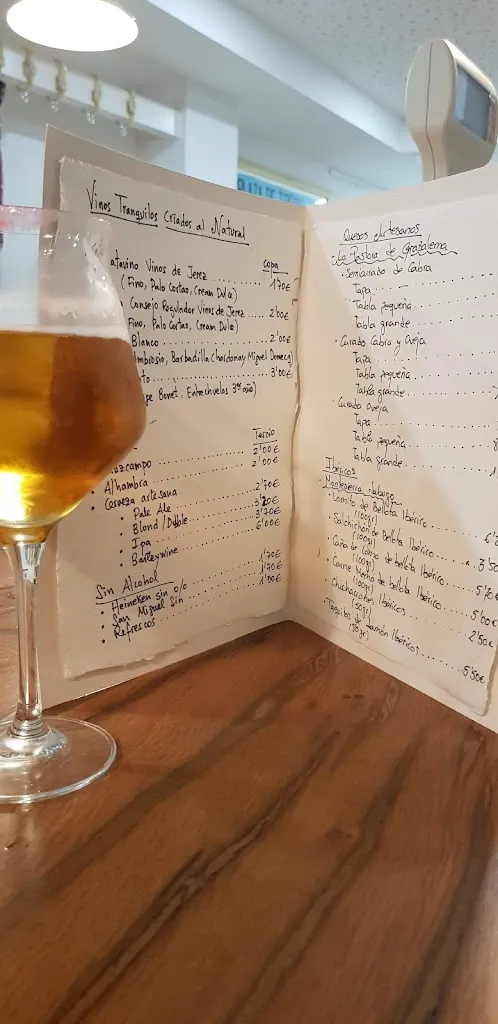 PLAZA DE TOROS
Vinos Tranquilos Criados al Natural
copa
Catavino Vinos de Jerez ........ 1'70€
(Fino, Palo Cortao, Cream Dulce)
Consejo Regulador Vinos de Jerez .. 2'00€
Fino, Palo Cortao, (Cream Dulce)
Blanco ........ 2'00€
Ambrosio, Barbadillo, Chardonay Miguel Domecq)
to ........ 3'00€
Bonet, Entrechuelos 3er año)
Tercio
uzcampo ........ 2'00€
• Alhambra ........ 2'00€
• Cerveza artesana
• Pale Ale ........ 2'70€
• Blond/Doble ........
• Ipa ........ 3'70€
• Barleywine ........ 6'00€
Sin Alcohol
• Heineken sin 0/0 ........ 1'70€
• San Miguel Sin ........ 1'70€
• Refrescos ........ 1'00€
Quesos Artesanos
La Pastora de Grazalema
- Semicurado de Cabra
Tapa ........
Tabla pequeña ........
Tabla grande ........
- Curado Cabra y Oveja
Tapa ........
Tabla pequeña ........
Tabla grande ........
- Curado Oveja
Tapa ........
Tabla pequeña ........
Tabla grande ........
Ibéricos
Montesierra Jabugo
- Lomito de Bellota Ibérico ........
(100gr)
- Salchichón de Bellota Ibérico ........ 3'50
(100gr)
- Caña de Lomo de bellota Ibérico ........
(100gr)
- Carne Mechá de bellota Ibérico ........ 5'00€
(100gr)
- Chicharrones Ibéricos ........ 2'50€
(50gr)
- Taquitos de Jamón Ibéricos ........ 5'50€
(50gr)